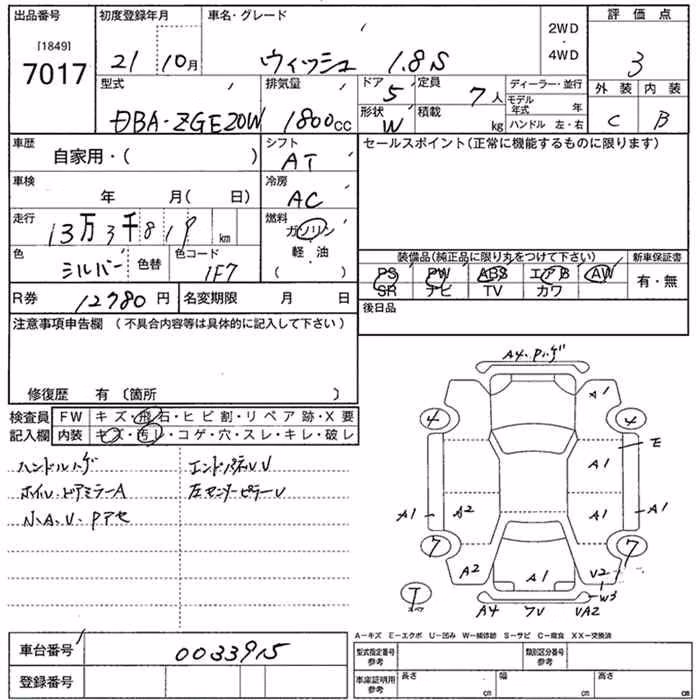 出品番号 初度登録年月 車名・グレード 2WD 評価点
[1849] 7017 21 10月 ウィッシュ 1.8S 4WD 3
型式 排気量 ドア 5 定員 7人 ディーラー・並行 外装 内装
DBA-ZGE20W 1800cc 形状 W 積載 kg モデル年式 年 C B
ハンドル 左・右
車歴 シフト セールスポイント(正常に機能するものに限ります)
自家用・( ) AT
車検 冷房
年 月( 日) AC
走行 燃料
13万3千819 km ガソリン
色 色コード 軽・油
シルバー 色替 1F7 ( )
装備品(純正品に限り丸をつけて下さい) 新車保証書
PS PW ABS エアB AW 有・無
SR ナビ TV カワ
R券 12780円 名変期限 月 日 後日品
注意事項申告欄(不具合内容等は具体的に記入して下さい)
修復歴 有〔箇所 〕
検査員 FW キズ・飛石・ヒビ割・リペア跡・X要
記入欄 内装 キズ・汚レ・コゲ・穴・スレ・キレ・破レ
ハンドルハゲ エンドパネルU
ホイル・ドアミラーA 左センターピラーU
小、A、U、Pアセ
A4.Pハゲ
A1
4 4
E
A1
A1 A2 A1 A1
7 7
A2 A1 U2
W3
T スペア A4 フU UA2
A-キズ E-エクボ U-凹み W-補修跡 S-サビ C-腐食 XX-交換済
車台番号 0033915
登録番号
型式指定番号 参考 類別区分番号 参考
車庫証明用 参考 長さ cm 幅 cm 高さ cm